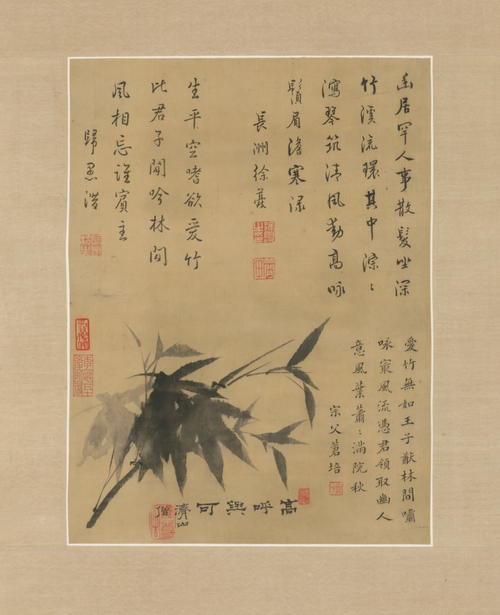 幽居罕人事散髮坐深
竹溪流環其中淙〻
瀉琴筑清風動高咏
鬚眉澹寒渌
長洲徐夔
生平空嗜欲愛竹
比君子閒吟林間
風相忘誰賓主
歸愚潛
愛竹無如王子猷林間嘯
咏最風流憑君領取幽人
意風葉蕭〻滿院秋
宗父 培
高呼與可 濟山僧